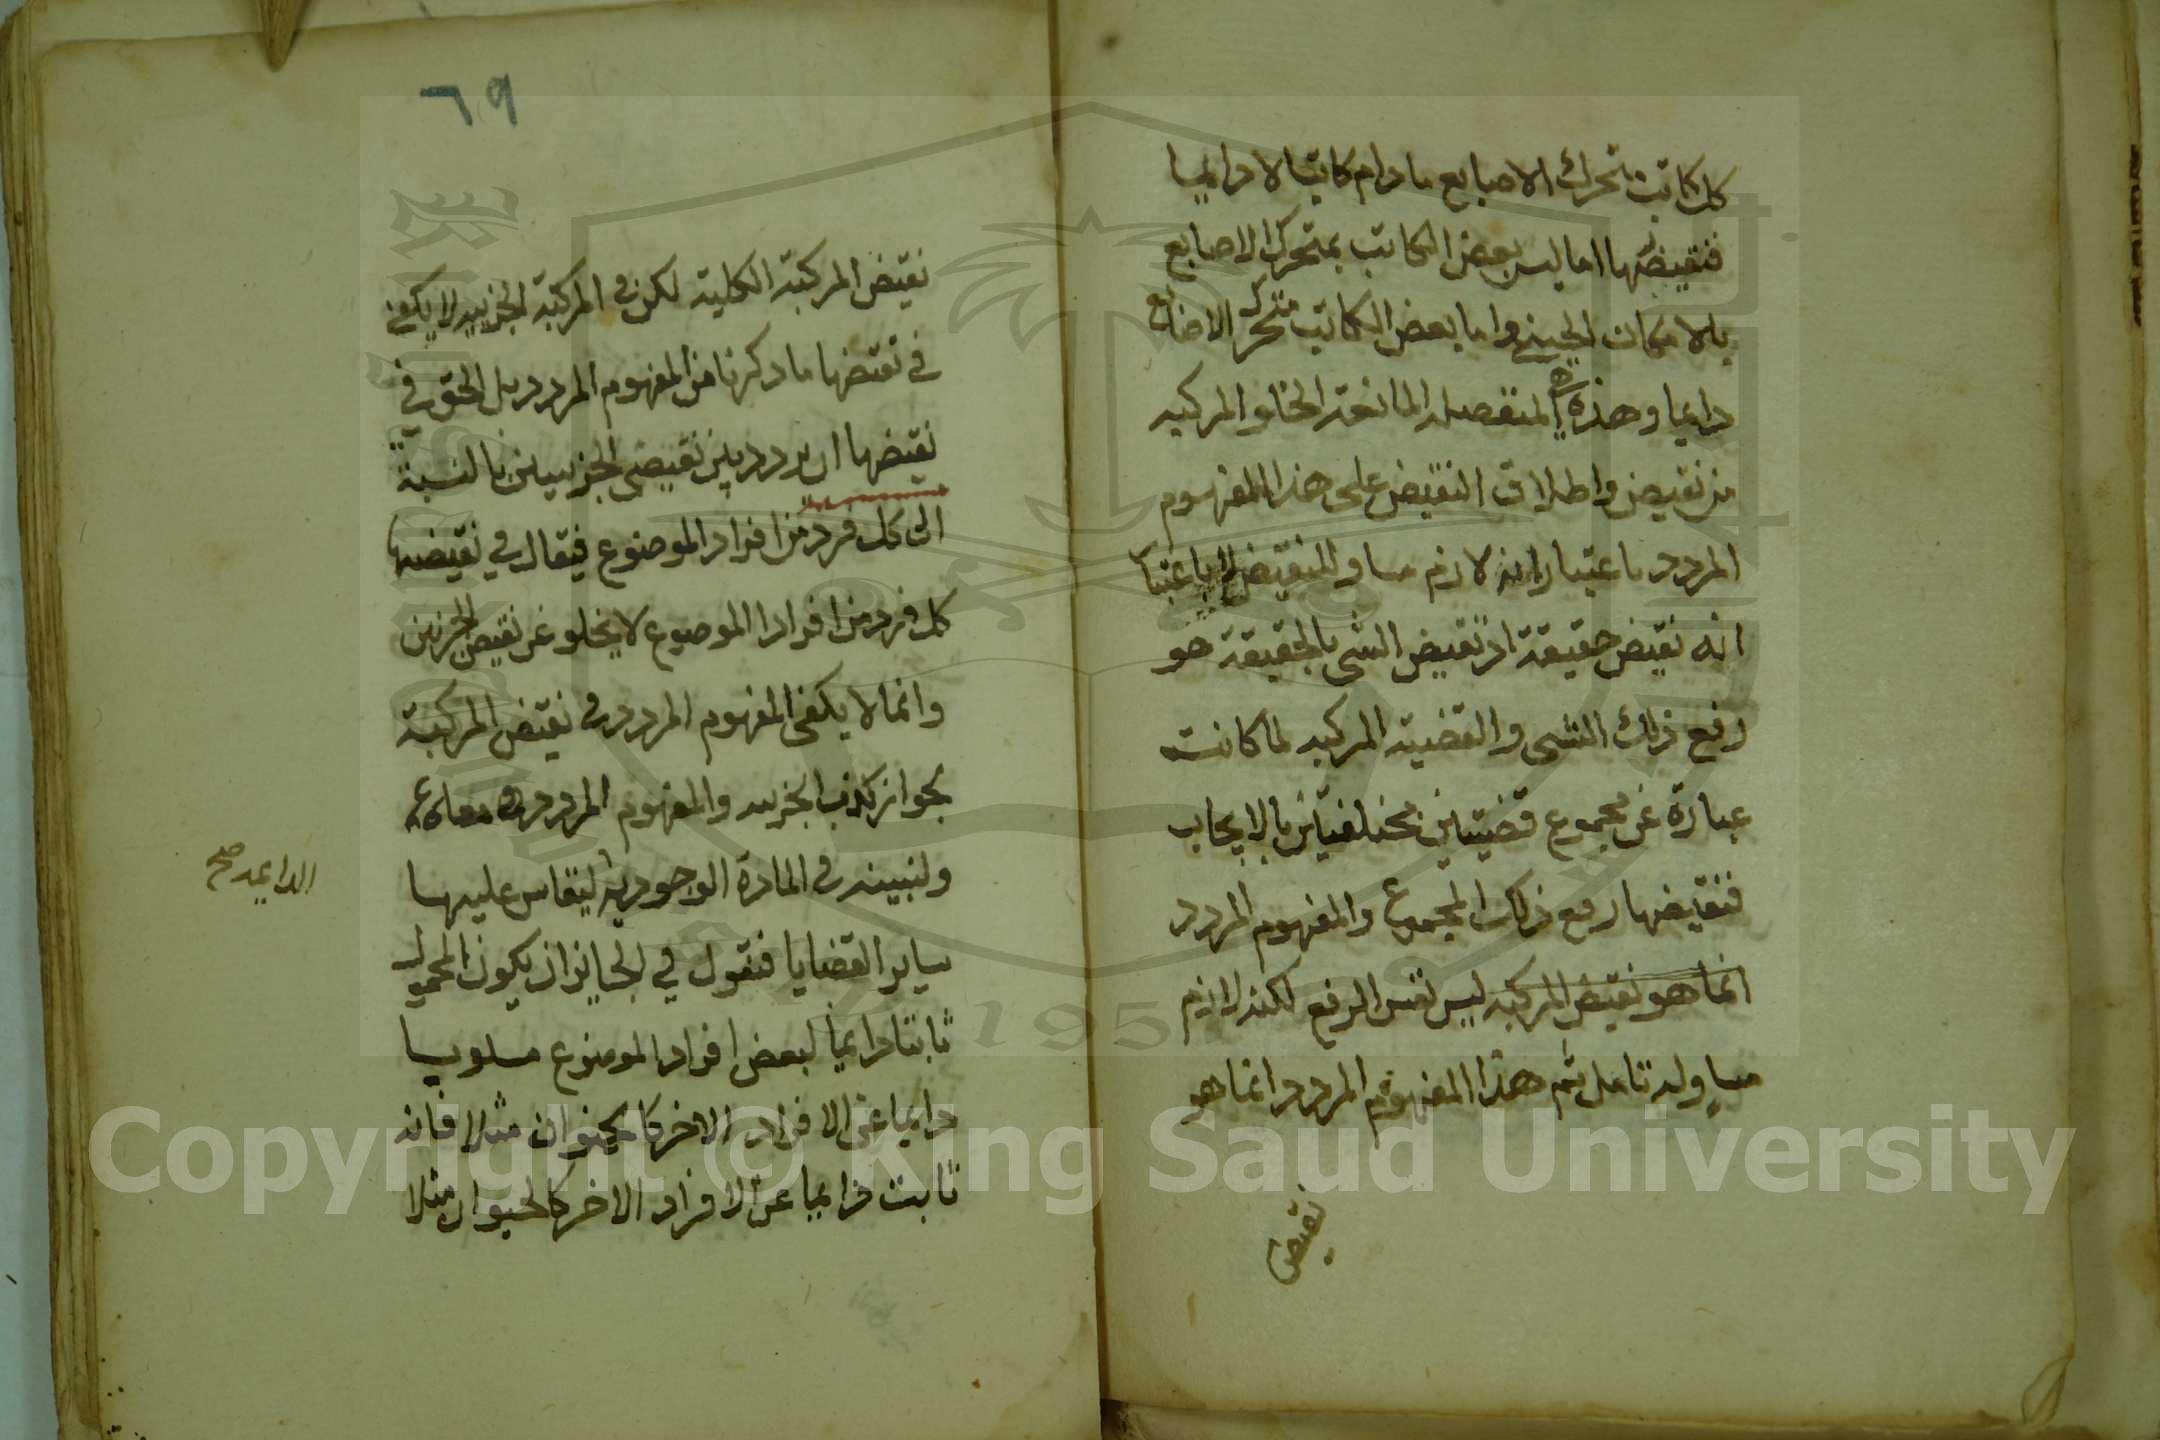 كل كاتب متحرك الاصابع ما دام كاتبا لا دايما
فنقيضها اما ليس بعض الكاتب بمتحرك الاصابع
بالامكان الحيني واما بعض الكاتب متحرك الاصابع
دايما وهذه هي المنفصله المانعة الخلو المركبه
من نقيض واطلاق النقيض على هذا المفهوم
المردد باعتبار انه لازم مساو للنقيض لا باعتبار
انه نقيض حقيقة اذ نقيض الشى بالحقيقة هو
رفع ذلك الشى والقضية المركبه لما كانت
عبارة عن مجموع قضيتين مختلفتين بالايجاب
فنقيضها رفع ذلك المجموع والمفهوم المردد
انما هو نقيض المركبه ليس نفس الرفع لكنه لازم
مساو له تامل ثم هذا المفهوم المردد انما هو
نقيض
٦٩
نقيض المركبة الكلية لكن في المركبة الجزييه لا يكفي
في نقيضها ما ذكرنا من المفهوم المردد بل الحق في
نقيضها ان يردد بين نقيضى الجزييين بالنسبة
الى كل فرد من افراد الموضوع فيقال في نقيضها
كل فرد من افراد الموضوع لا يخلو عن نقيض الجزئين
وانما لا يكفى المفهوم المردد في نقيض المركبة
بجواز كذب الجزييه والمفهوم المردد معا
ولنبينه في المادة الوجوديه ليقاس عليها
الدايمه صح
ساير القضايا فنقول في الجايز ان يكون المحمول
ثابتا دايما لبعض افراد الموضوع مسلوبا
دايما عن الافراد الاخر كالحيوان مثلا فانه
ثابت دايما عن الافراد الاخر كالحيوان مثلا
Copyright © King Saud University
1957